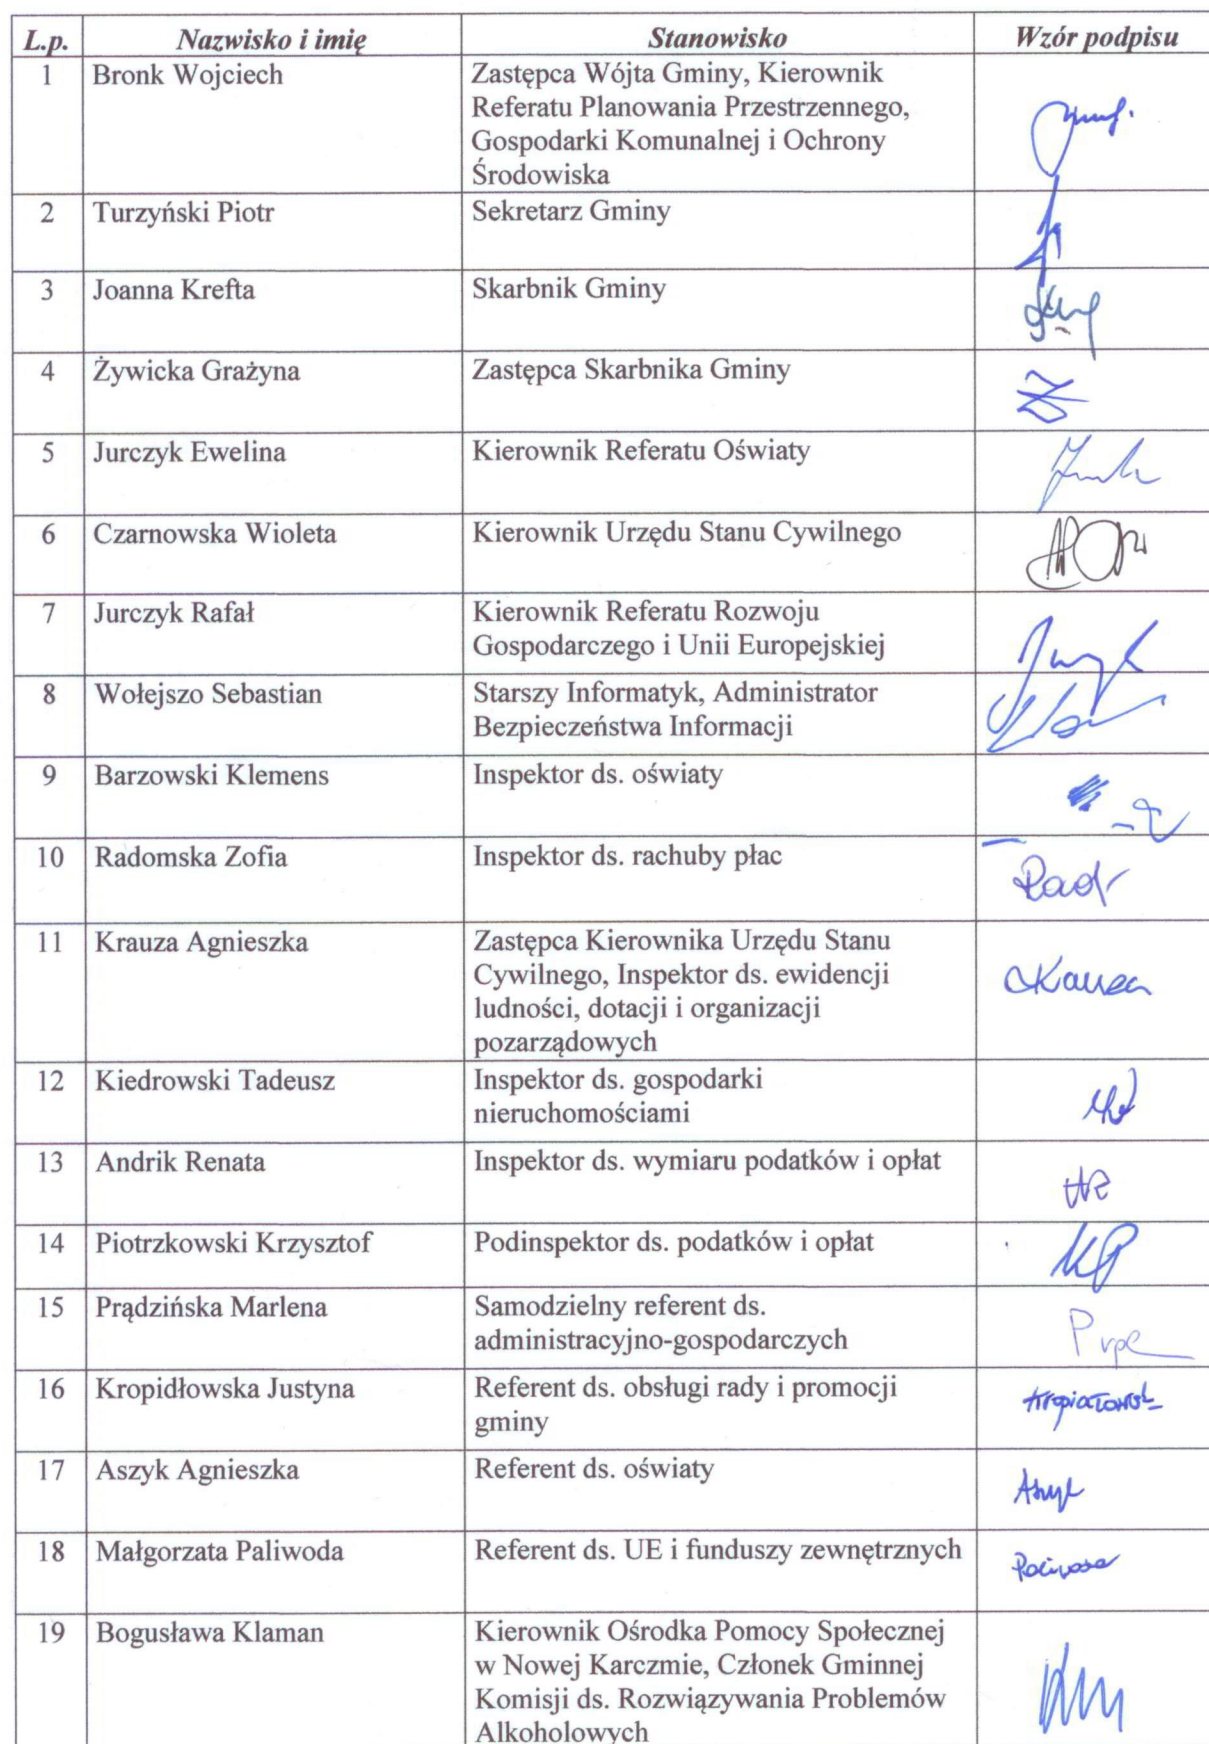 L.p. Nazwisko i imię Stanowisko Wzór podpisu
1 Bronk Wojciech Zastępca Wójta Gminy, Kierownik
Referatu Planowania Przestrzennego,
Gospodarki Komunalnej i Ochrony
Środowiska
2 Turzyński Piotr Sekretarz Gminy
3 Joanna Krefta Skarbnik Gminy
4 Żywicka Grażyna Zastępca Skarbnika Gminy
5 Jurczyk Ewelina Kierownik Referatu Oświaty
6 Czarnowska Wioleta Kierownik Urzędu Stanu Cywilnego
7 Jurczyk Rafał Kierownik Referatu Rozwoju
Gospodarczego i Unii Europejskiej
8 Wołejszo Sebastian Starszy Informatyk, Administrator
Bezpieczeństwa Informacji
9 Barzowski Klemens Inspektor ds. oświaty
10 Radomska Zofia Inspektor ds. rachuby płac
11 Krauza Agnieszka Zastępca Kierownika Urzędu Stanu
Cywilnego, Inspektor ds. ewidencji
ludności, dotacji i organizacji
pozarządowych
12 Kiedrowski Tadeusz Inspektor ds. gospodarki
nieruchomościami
13 Andrik Renata Inspektor ds. wymiaru podatków i opłat
14 Piotrzkowski Krzysztof Podinspektor ds. podatków i opłat
15 Prądzińska Marlena Samodzielny referent ds.
administracyjno-gospodarczych
16 Kropidłowska Justyna Referent ds. obsługi rady i promocji
gminy
17 Aszyk Agnieszka Referent ds. oświaty
18 Małgorzata Paliwoda Referent ds. UE i funduszy zewnętrznych
19 Bogusława Klaman Kierownik Ośrodka Pomocy Społecznej
w Nowej Karczmie, Członek Gminnej
Komisji ds. Rozwiązywania Problemów
Alkoholowych